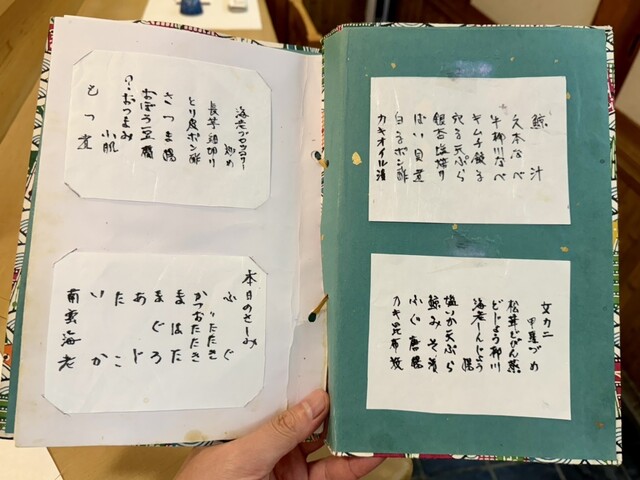 鯨汁
なべ
牛柳川なべ
キムチ餃子
穴子天ぷら
銀杏塩焼き
ばい貝煮
白子ポン酢
カキオイル漬
女カニ
甲羅づめ
松茸どびん蒸
どじょう柳川
海老しんじょう
揚
塩いか天ぷら
鯨みそ漬
ふぐ唐揚
カキ昆布焼
海老ブロッコリー
炒め
長芋
とり皮ポン酢
さつま揚
おぼろ豆腐
小肌
おつまみ
もつ煮
本日のさしみ
ふぐ
〃たたき
かつおたたき
まはた
まぐろ
あじ
たこ
いか
南蛮海老